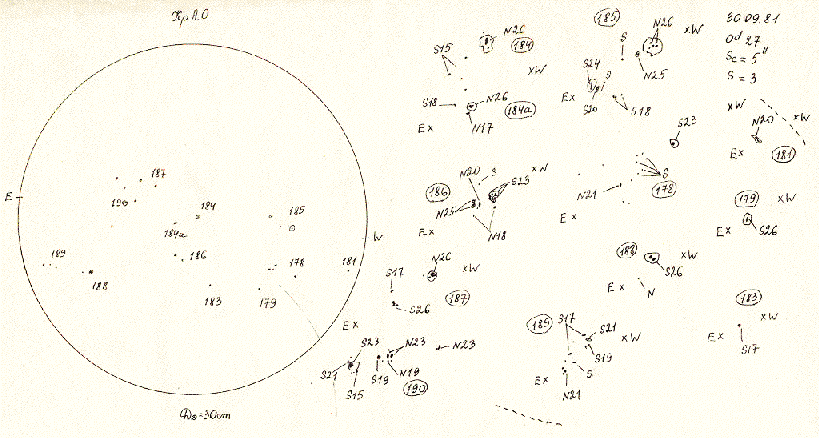 Кр.А.О
30.09.81
Od 27
Sc = 5"
S = 3
E
W
187
190
184
184a
185
186
189
188
178
181
183
179
D☉=30cm
S15
N20
184
xW
S18
N26
184a
Ex
N17
185
S
N26
xW
S24
N25
Ex
S20
S18
S23
xW
N20
xW
Ex
181
N20
S
S23
xW
186
N25
Ex
N18
S
N21
178
Ex
179
xW
Ex
S26
S17
N26
xW
S26
187
Ex
xW
S26
Ex
N
183
xW
Ex
S17
S23
N23
N23
S21
S15
S19
N19
190
S17
189
S21
S19
xW
Ex
S
N21